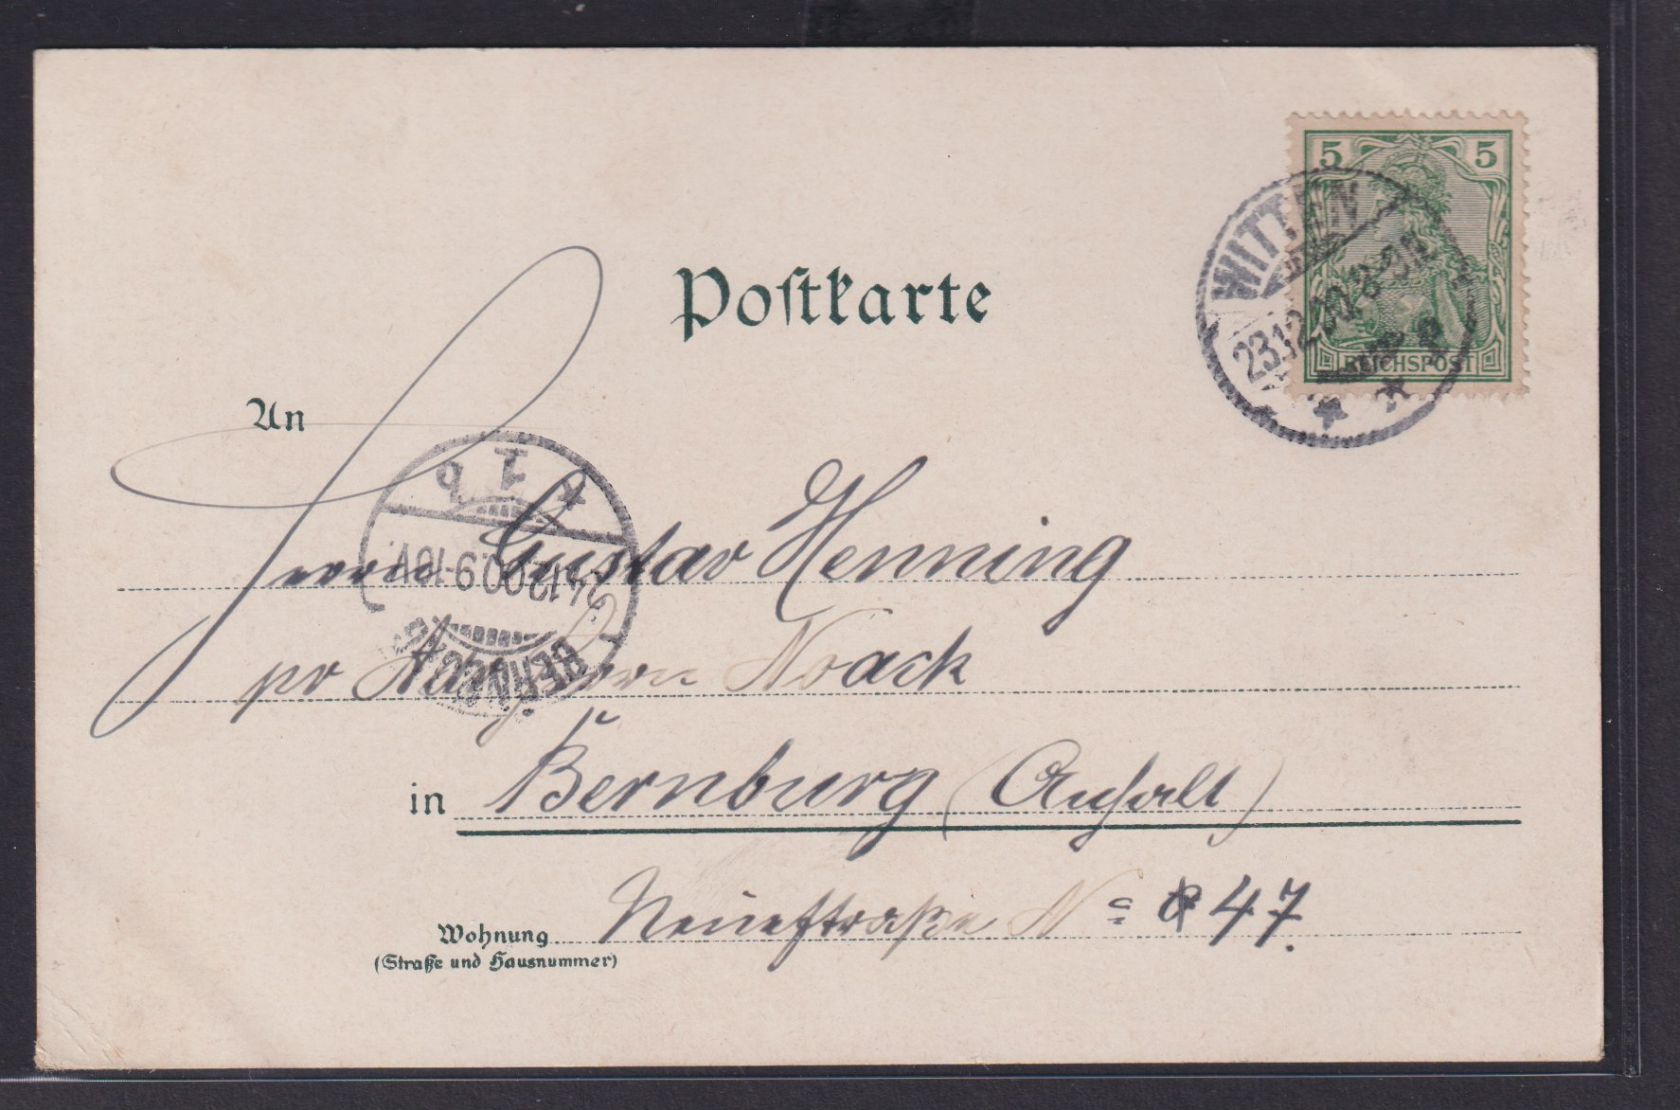 5 5
REICHSPOST
WITTEN
23.12.00. 8-9N
Postkarte
An
* 1 b
24.12.00.9-10V.
BERNBURG
Herrn Gustav Henning
pr Adr. Herrn Noack
in Bernburg (Anhalt)
Neuestraße No 47.
Wohnung
(Straße und Hausnummer)